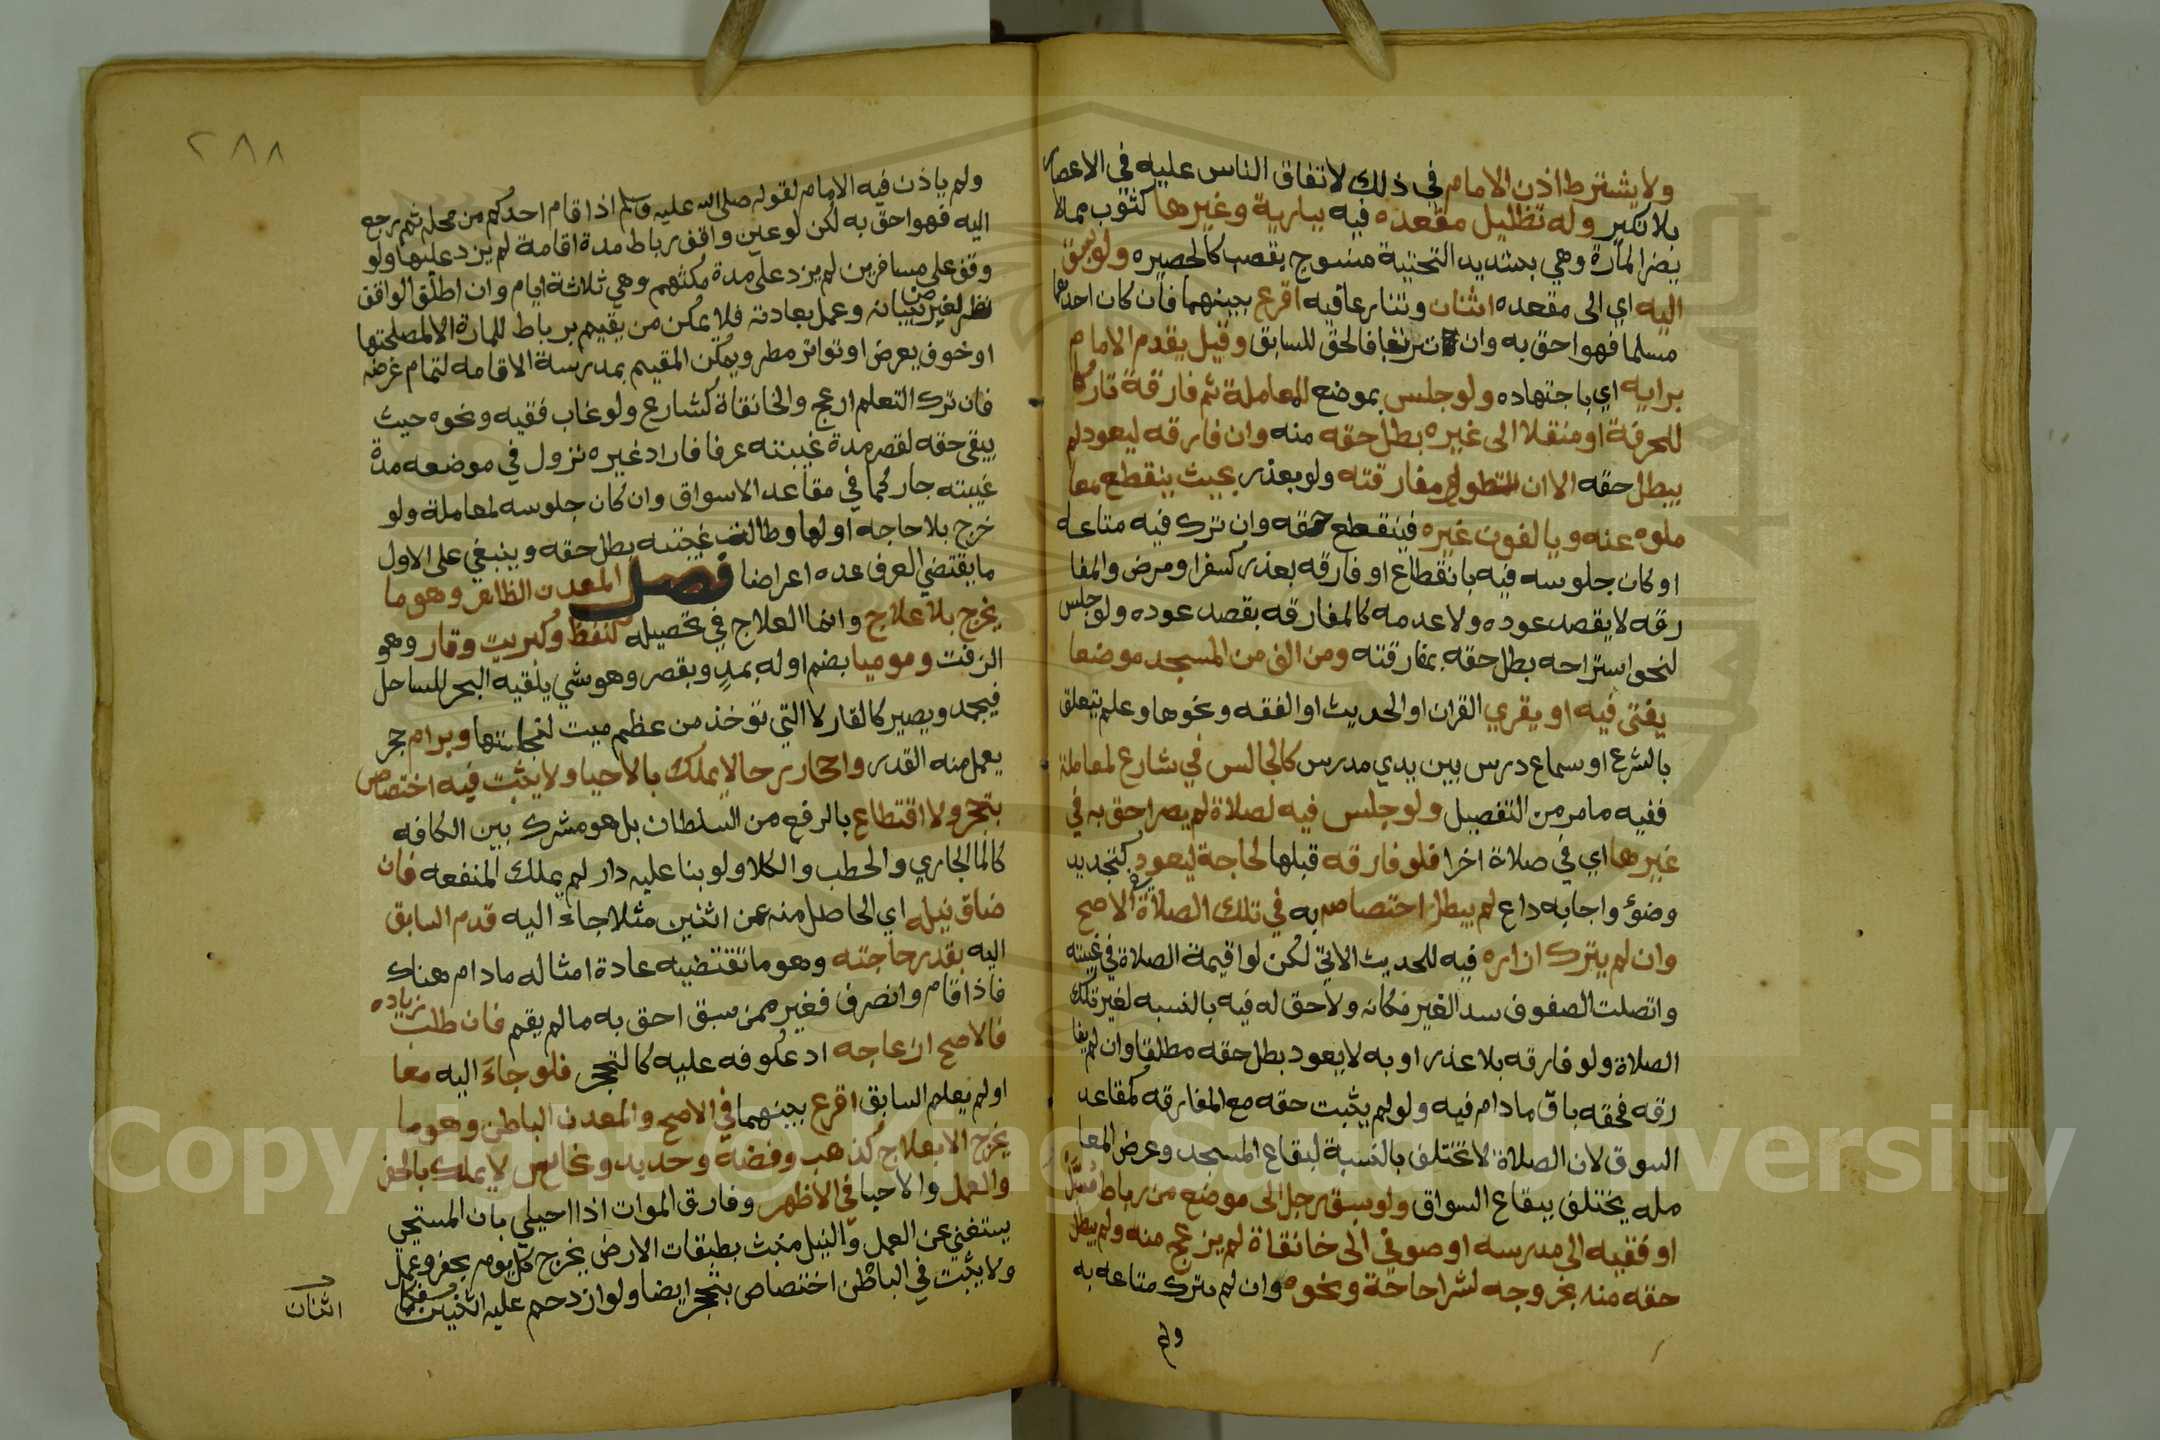 ولا يشترط اذن الامام في ذلك لاتفاق الناس عليه في الاعصار
بلا نكير وله تظليل مقعده فيه ببارية وغيرها كثوب مما لا
يضر المارة وهي بتشديد التحتية منسوج بقصب كالحصيره ولو سبق
اليه اي الى مقعده اثنان وتنازعا فيه اقرع بينهما فان كان احدهما
مسلما فهو احق به وان ترتبا فالحق للسابق وقيل يقدم الامام
برايه اي باجتهاده ولو جلس بموضع للمعاملة ثم فارقة تاركا
للحرفة او منتقلا الى غيره بطل حقه منه وان فارقه ليعود لم
يبطل حقه الا ان تطول مفارقته ولو بعذر بحيث ينقطع معا
ملوه عنه ويالفون غيره فينقطع حقه وان ترك فيه متاعه
او كان جلوسه فيه باقطاع او فارقه بعذر كسفر او مرض والمفا
رقه لا بقصد عوده ولا عدمه كالمفارقه بقصد عوده ولو جلس
لنحو استراحه بطل حقه بمفارقته ومن الف من المسجد موضعا
يفتى فيه او يقري القران او الحديث او الفقه ونحوها وعلم يتعلق
بالشرع او سماع درس بين يدي مدرس كالجالس في شارع لمعاملة
ففيه ما مر من التفصيل ولو جلس فيه لصلاة لم يصر احق به في
غيرها اي في صلاة اخرا فلو فارقه قبلها لحاجة ليعود كتجديد
وضوء واجابه داع لم يبطل اختصاصه به في تلك الصلاة في الاصح
وان لم يترك ازاره فيه للحديث الاتي لكن لو اقيمة الصلاة في غيبته
واتصلت الصفوف سد الغير مكانه ولا حق له فيه بالنسبه لغير تلك
الصلاة ولو فارقه بلا عذر او به لا ليعود بطل حقه مطلقا وان لم يفا
رقه فحقه باق ما دام فيه ولو لم يثبت حقه مع المفارقه كمقاعد
السوق لان الصلاة لا تختلف بالنسبة لبقاع المسجد وغرض المعا
مله يختلف ببقاع السواق ولو سبق رجل الى موضع من رباط مسبل
او فقيه الى مدرسه او صوفي الى خانقاة لم يزعج منه ولم يبطل
حقه منه بخروجه لشرا حاجة ونحوه وان لم يترك متاعه به
ولم
٢٨٨
ولم ياذن فيه الامام لقوله صلى الله عليه وسلم اذا قام احدكم من محله ثم رجع
اليه فهو احق به لكن لو عين واقف رباط مدة اقامة لم يزد عليها ولو
وقف على مسافرين لم يزد على مدة مكثهم وهي ثلاثة ايام وان اطلق الواقف
نظر لغرض بنيانه وعمل بعادته فلا يمكن من يقيم برباط للمارة الا لمصلحتها
او خوف يعرض او تواتر مطر ويمكن المقيم بمدرسة الاقامه لتمام غرضه
فان ترك التعلم ازعج والخانقاة كشارع ولو غاب فقيه ونحوه حيث
يبقى حقه لقصر مدة غيبته عرفا فاراد غيره نزول في موضعه مدة
غيبته جاز كما في مقاعد الاسواق وان كان جلوسه لمعاملة ولو
خرج بلا حاجه او لها وطالت غيبته بطل حقه وينبغي على الاول
ما يقتضي العرف عده اعراضا فصل المعدن الظاهر وهو ما
يخرج بلا علاج وانما العلاج في تحصيله كنفط وكبريت وقار وهو
الزفت وموميا بضم اوله بمد وبقصر وهو شي يلقيه البحر للساحل
فيجمد ويصير كالقار لا التي توخذ من عظم ميت لنجاستها وبرام حجر
يعمل منه القدر واحجار رحا لا يملك بالاحيا ولا يثبت فيه اختصاص
بتحجر ولا اقتطاع بالرفع من السلطان بل هو مشرك بين الكافه
كالما الجاري والحطب والكلا ولو بنا عليه دار لم يملك المنفعه فان
ضاق نيله اي الحاصل منه عن اثنين مثلا جاءا اليه قدم السابق
اليه بقدر حاجته وهو ما تقتضيه عادة امثاله ما دام هناك
فاذا قام وانصرف فغيره ممن سبق احق به ما لم يقم فان طلب زياده
فالاصح ازعاجه اذ عكوفه عليه كالتحجر فلو جاءا اليه معا
او لم يعلم السابق اقرع بينهما في الاصح والمعدن الباطن وهو ما
يخرج الا بعلاج كذهب وفضة وحديد ونحاس لا يملك بالحفر
والعمل والاحيا في الاظهر وفارق الموات اذا احيلي بان المستحيي
يستغني عن العمل والنيل مبثث بطبقات الارض يخرج كل يوم بحفر وعمل
ولا يثبت في الباطن اختصاص بتحجر ايضا ولو ازدحم عليه اثنين فكما
اثنان
Copyright © King Saud University